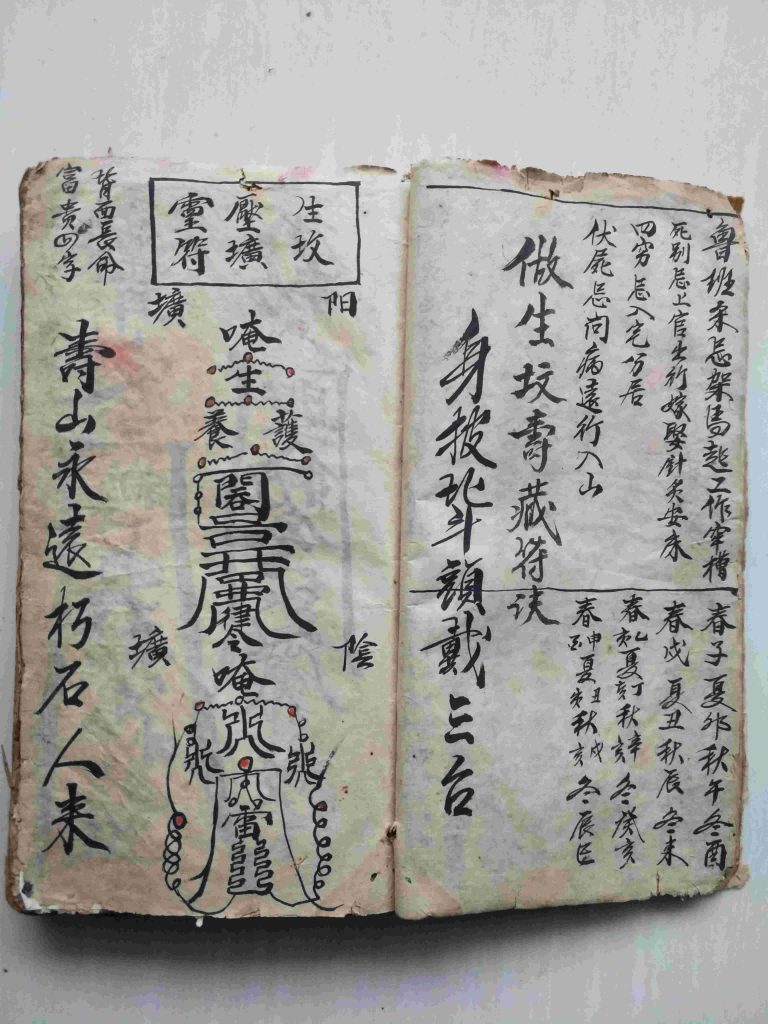 魯班杀忌架馬起工作牢槽
死别忌上官出行嫁娶針炙安床
四穷忌入宅分居
伏屍忌问病遠行入山
春子夏卯秋午冬酉
春戌夏丑秋辰冬未
春乙亥夏丁亥秋辛亥冬癸亥
做生坟壽藏符诀
身披北斗頭戴三台
生坟
壓壙
靈符
背面長命
富贵四字
阳
壙
唵
生
養 護
閣
令
陰
壙
唵
雷
壽山永遠朽石人来